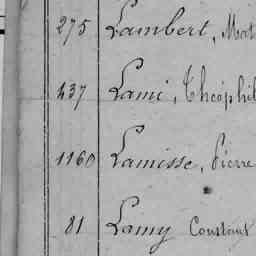 275 Lambert, Mat
437 Lami, Théophil
1160 Lamisse, Pierre
81 Lamy Constant